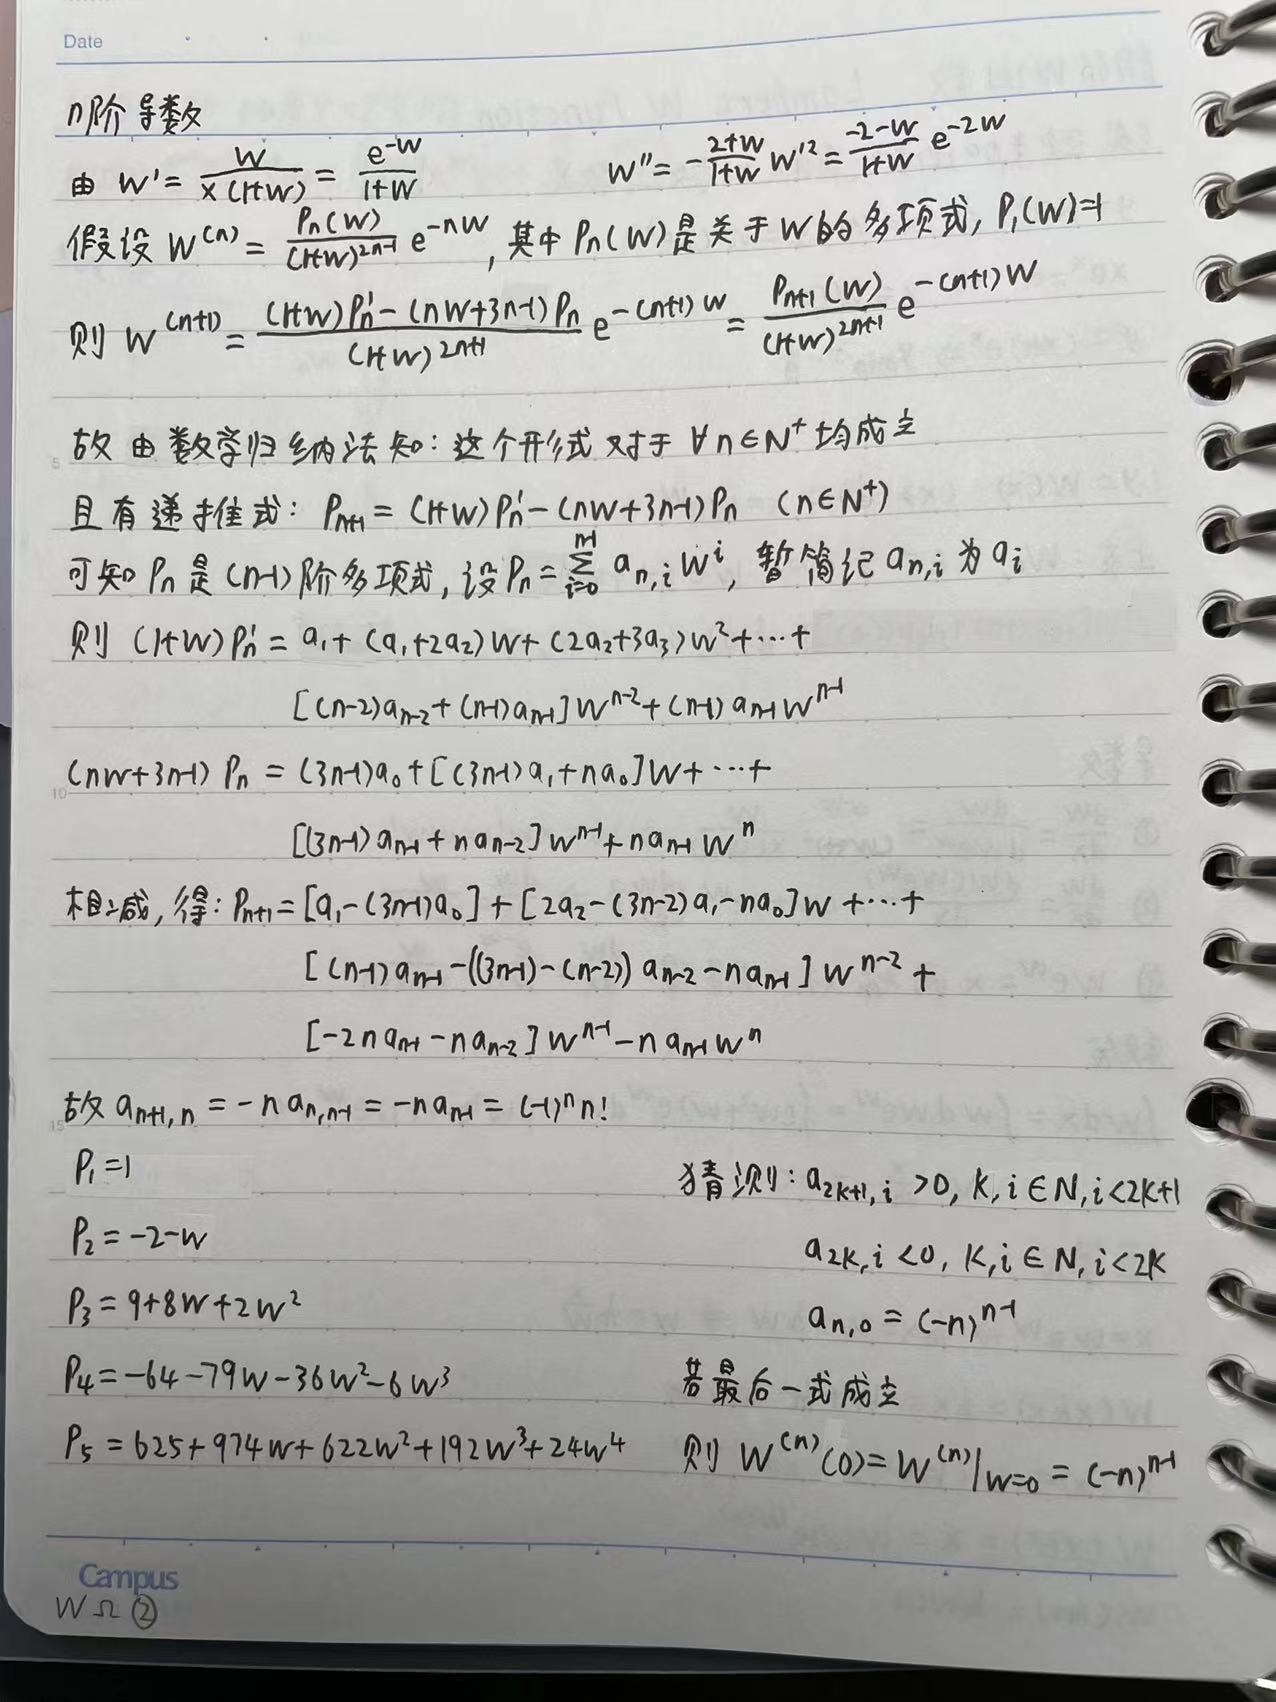 Date
n阶导数
由 W' = W/(x(1+W)) = e^{-W}/(1+W)    W'' = -(2+W)/(1+W) W'^2 = (-2-W)/(1+W) e^{-2W}
假设 W^{(n)} = P_n(W)/(1+W)^{2n-1} e^{-nW}, 其中 P_n(W)是关于W的多项式, P_1(W)=1
则 W^{(n+1)} = ((1+W)P_n' - (nW+3n-1)P_n)/(1+W)^{2n+1} e^{-(n+1)W} = P_{n+1}(W)/(1+W)^{2n+1} e^{-(n+1)W}
故由数学归纳法知: 这个形式对于 ∀n∈N^+ 均成立
5
且有递推式: P_{n+1} = (1+W)P_n' - (nW+3n-1)P_n (n∈N^+)
可知 P_n 是 (n-1)阶多项式, 设 P_n = ∑_{i=0}^{n-1} a_{n,i} W^i, 暂简记 a_{n,i} 为 a_i
则 (1+W)P_n' = a_1 + (a_1+2a_2)W + (2a_2+3a_3)W^2 + ⋯ +
[(n-2)a_{n-2} + (n-1)a_{n-1}]W^{n-2} + (n-1)a_{n-1}W^{n-1}
(nW+3n-1) P_n = (3n-1)a_0 + [(3n-1)a_1 + na_0]W + ⋯ +
10
[(3n-1)a_{n-1} + na_{n-2}]W^{n-1} + na_{n-1}W^n
相减, 得: P_{n+1} = [a_1-(3n-1)a_0] + [2a_2-(3n-2)a_1-na_0]W + ⋯ +
[(n-1)a_{n-1} - ((3n-1)-(n-2))a_{n-2} - na_{n-1}]W^{n-2} +
[-2na_{n-1} - na_{n-2}]W^{n-1} - na_{n-1}W^n
故 a_{n+1,n} = -na_{n,n-1} = -na_{n-1} = (-1)^n n!
15
P_1 = 1
猜测: a_{2k+1,i} > 0, k,i∈N, i<2k+1
P_2 = -2-W
a_{2k,i} < 0, k,i∈N, i<2k
P_3 = 9+8W+2W^2
a_{n,0} = (-n)^{n-1}
P_4 = -64-79W-36W^2-6W^3
若最后一式成立
P_5 = 625+974W+622W^2+192W^3+24W^4
则 W^{(n)}(0) = W^{(n)}|_{W=0} = (-n)^{n-1}
Campus
WΩ ②